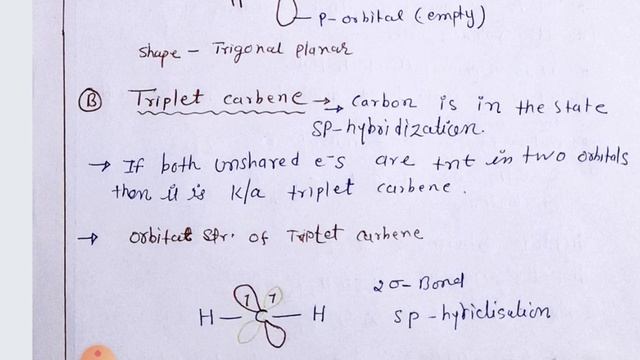 P-orbital (empty)
Shape - Trigonal planar
(B) Triplet carbene → Carbon is in the state
SP-hybridization.
→ If both unshared e-s are tnt in two orbitals
then it is k/a triplet carbene.
→ Orbital Str. of Triplet carbene
1 1
H - C - H
2σ-Bond
sp-hybridisation